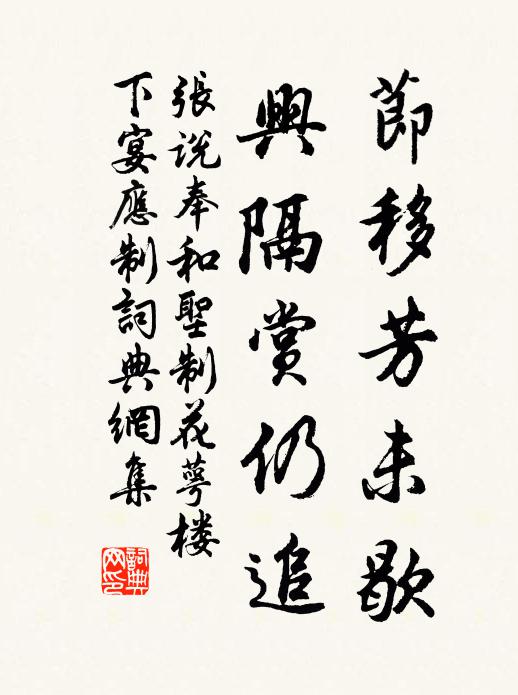 節移芳未歇
興隔賞仍追
張說奉和聖制花萼樓
下宴應制詞典網集
詞典网印